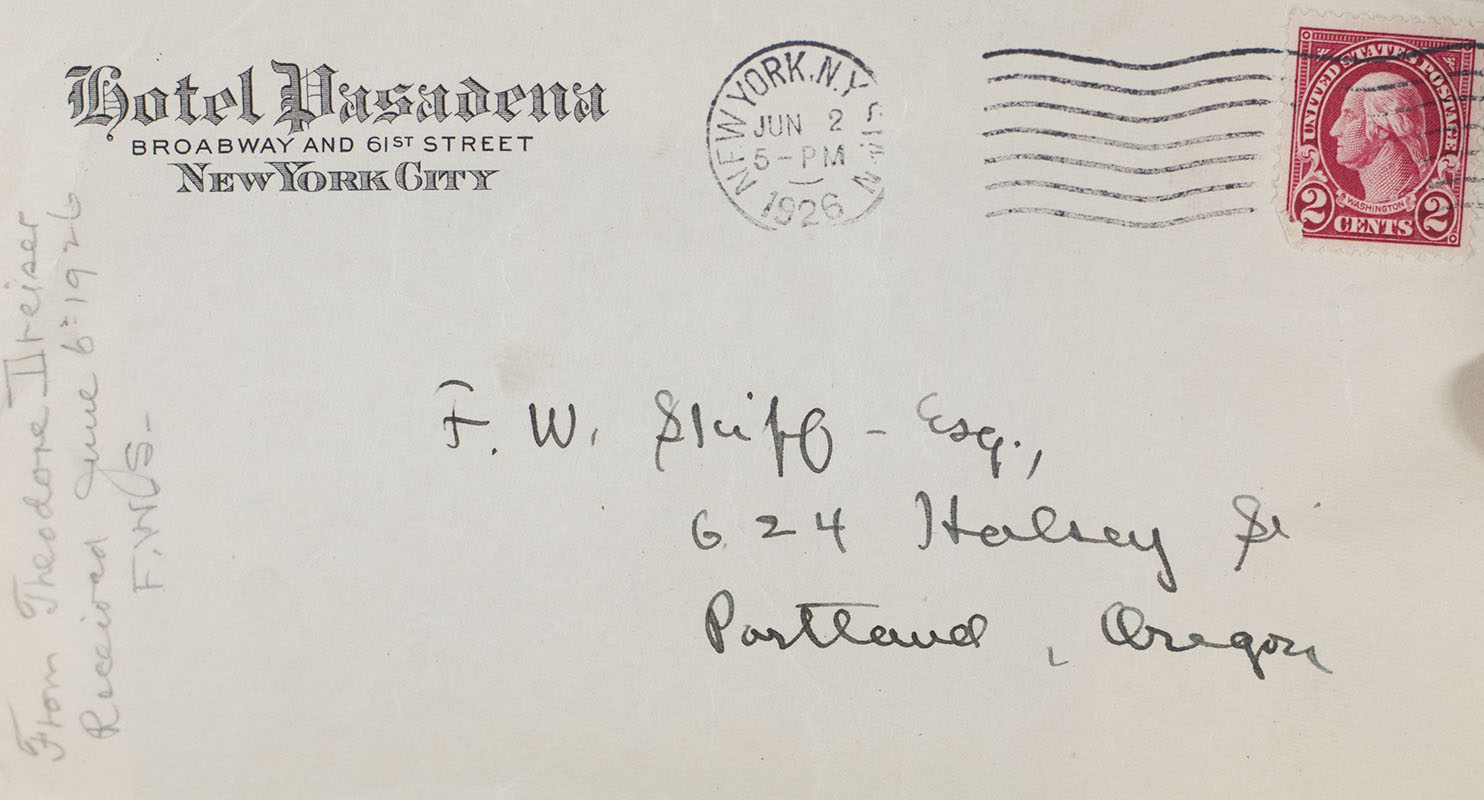 Hotel Pasadena
BROADWAY AND 61ST STREET
NEW YORK CITY
NEW YORK, N.Y.
JUN 2
5-PM
1926
UNITED STATES POSTAGE
WASHINGTON
2 CENTS 2
F. W. Skiff - Esq.,
624 Halsey St
Portland, Oregon
From Theodore Dreiser
Received June 6=1926
F.W.S-